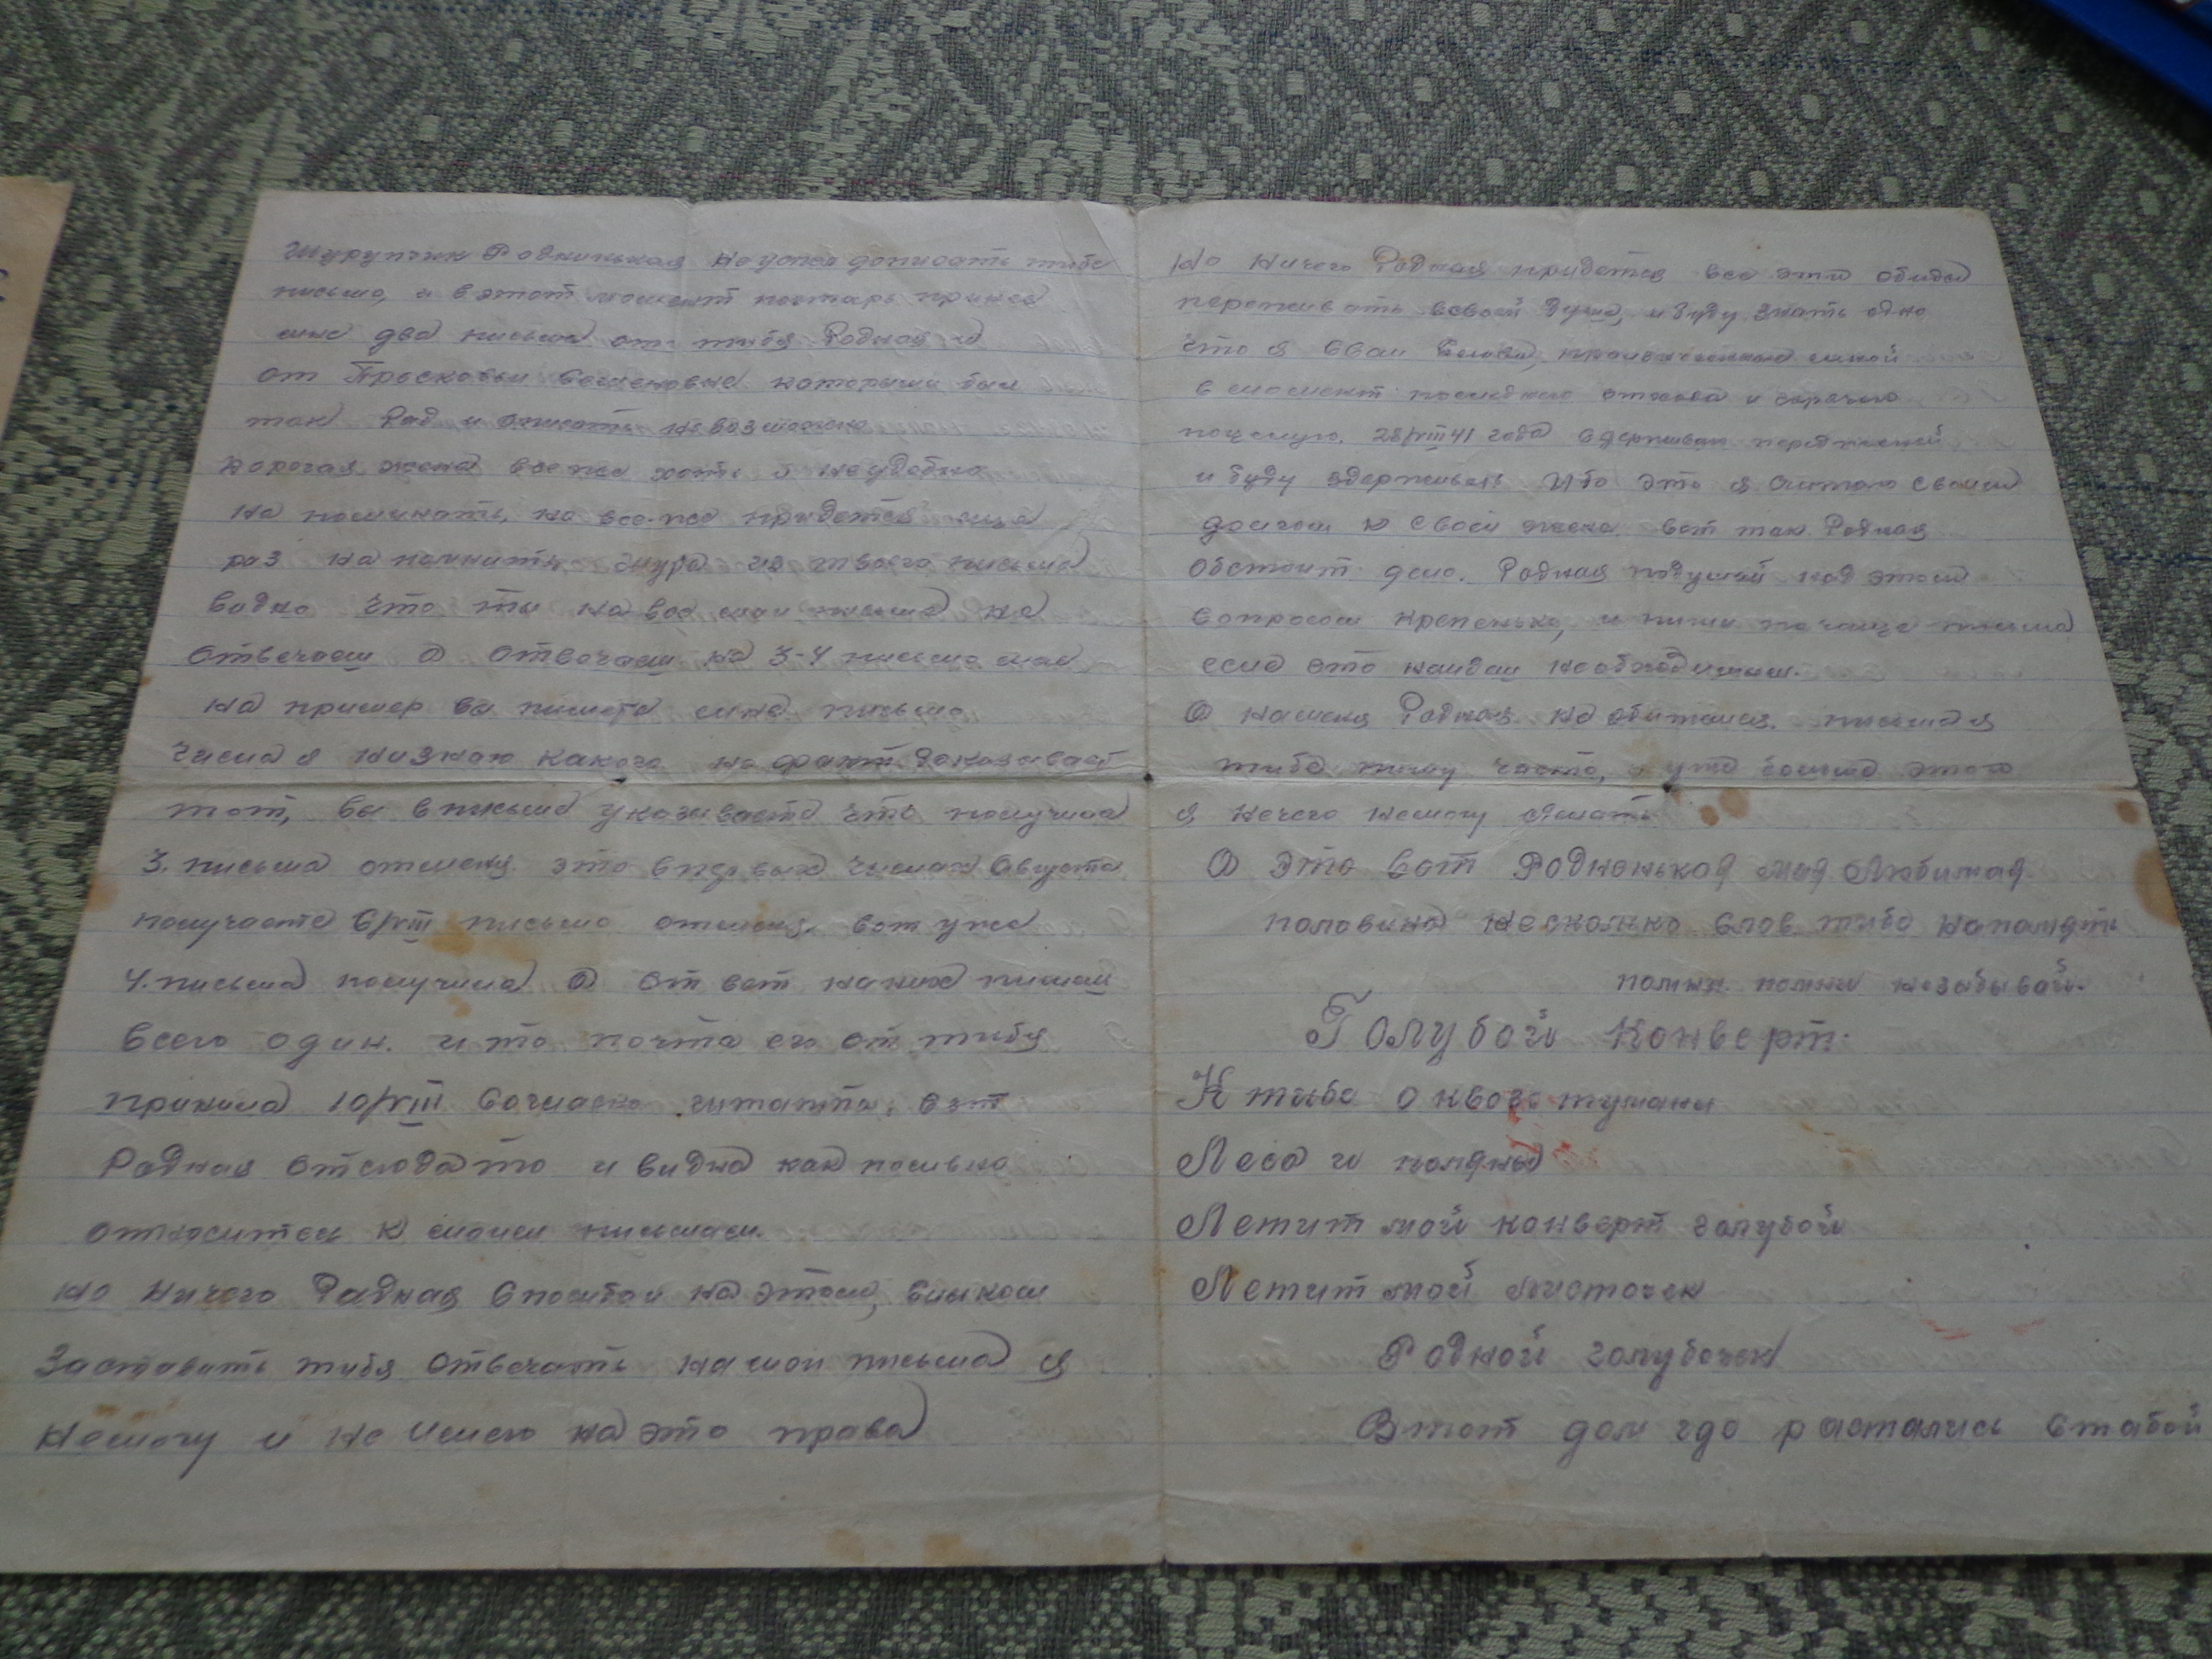 Шурупчик Роднинькая не успел дописать тибе
письмо, и в этот момент почтарь принес
мне два письма от тибя Родная и
от Просковьи Семеновне которыми был
так Рад и описать невозможно
дорогая жена все же хоть и неудобно
на поминать, но все-же придется еще
раз на помнить Шура из твоего письма
видно что ты на все мои письма не
отвечаеш а отвечаеш на 3-4 письма мое
на пример вы пишете мне письмо
числа я низнаю какого но факт доказывает
тот, вы в письме указываете что получила
3. письма отменя это впервых числах Августа
получаете 6/VIII письмо отменя. вот уже
4. письма получила а от вет на них пишеш
всего один. и то почта его от тибя
приняла 10/VIII согласно штампа. вот
Родная отсюдато и видна как
относитесь к моим письмам.
но ничего Родная на этом,
Заставить тибя отвечать на мои письма я
немогу и не имею на это права
но ничего Родная придется все эти обиды
переживать всвоей душе, и буду знать одно
что я свои слова, произнесенные мной
в момент последнего отхода и горячего
поцелуя. 28/VIII 41 года сдерживаю передженой
и буду здерживать Ибо это я считаю своим
долгом к своей жене. вот так Родная
обстоит дело. Родная подумай над этим
вопросом крепенько, и пиши по чаще письма
если это найдеш необходимым.
А наменя Родная не обижайся. письма я
тибе пишу часто, а уже больше этого
я нечего немогу сделать
А это вот Родненькая моя Любимая
половина несколько слов тибе напамять
помни. помни незабывай.
Голубой Конверт.
К тибе сквозь туманы
Леса и поляны
Летит мой конверт голубой
Летит мой листочек
Родной голубочек
Втот дом где растались стабой